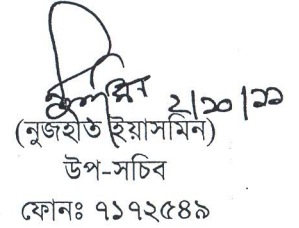 ২/১০/১১
(নুজহাত ইয়াসমিন)
উপ-সচিব
ফোনঃ ৭১৭২৫৪৯